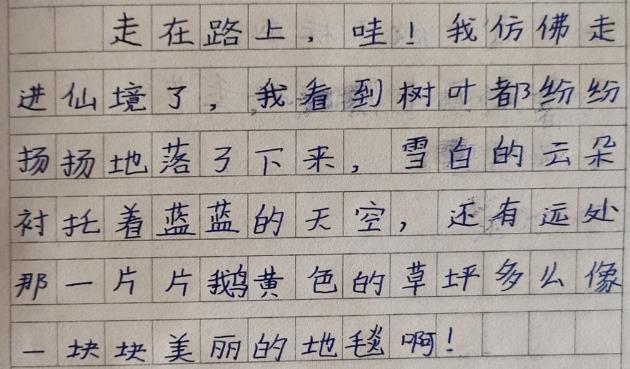 走在路上，哇！我仿佛走
进仙境了，我看到树叶都纷纷
扬扬地落了下来，雪白的云朵
衬托着蓝蓝的天空，还有远处
那一片片鹅黄色的草坪多么像
一块块美丽的地毯啊！